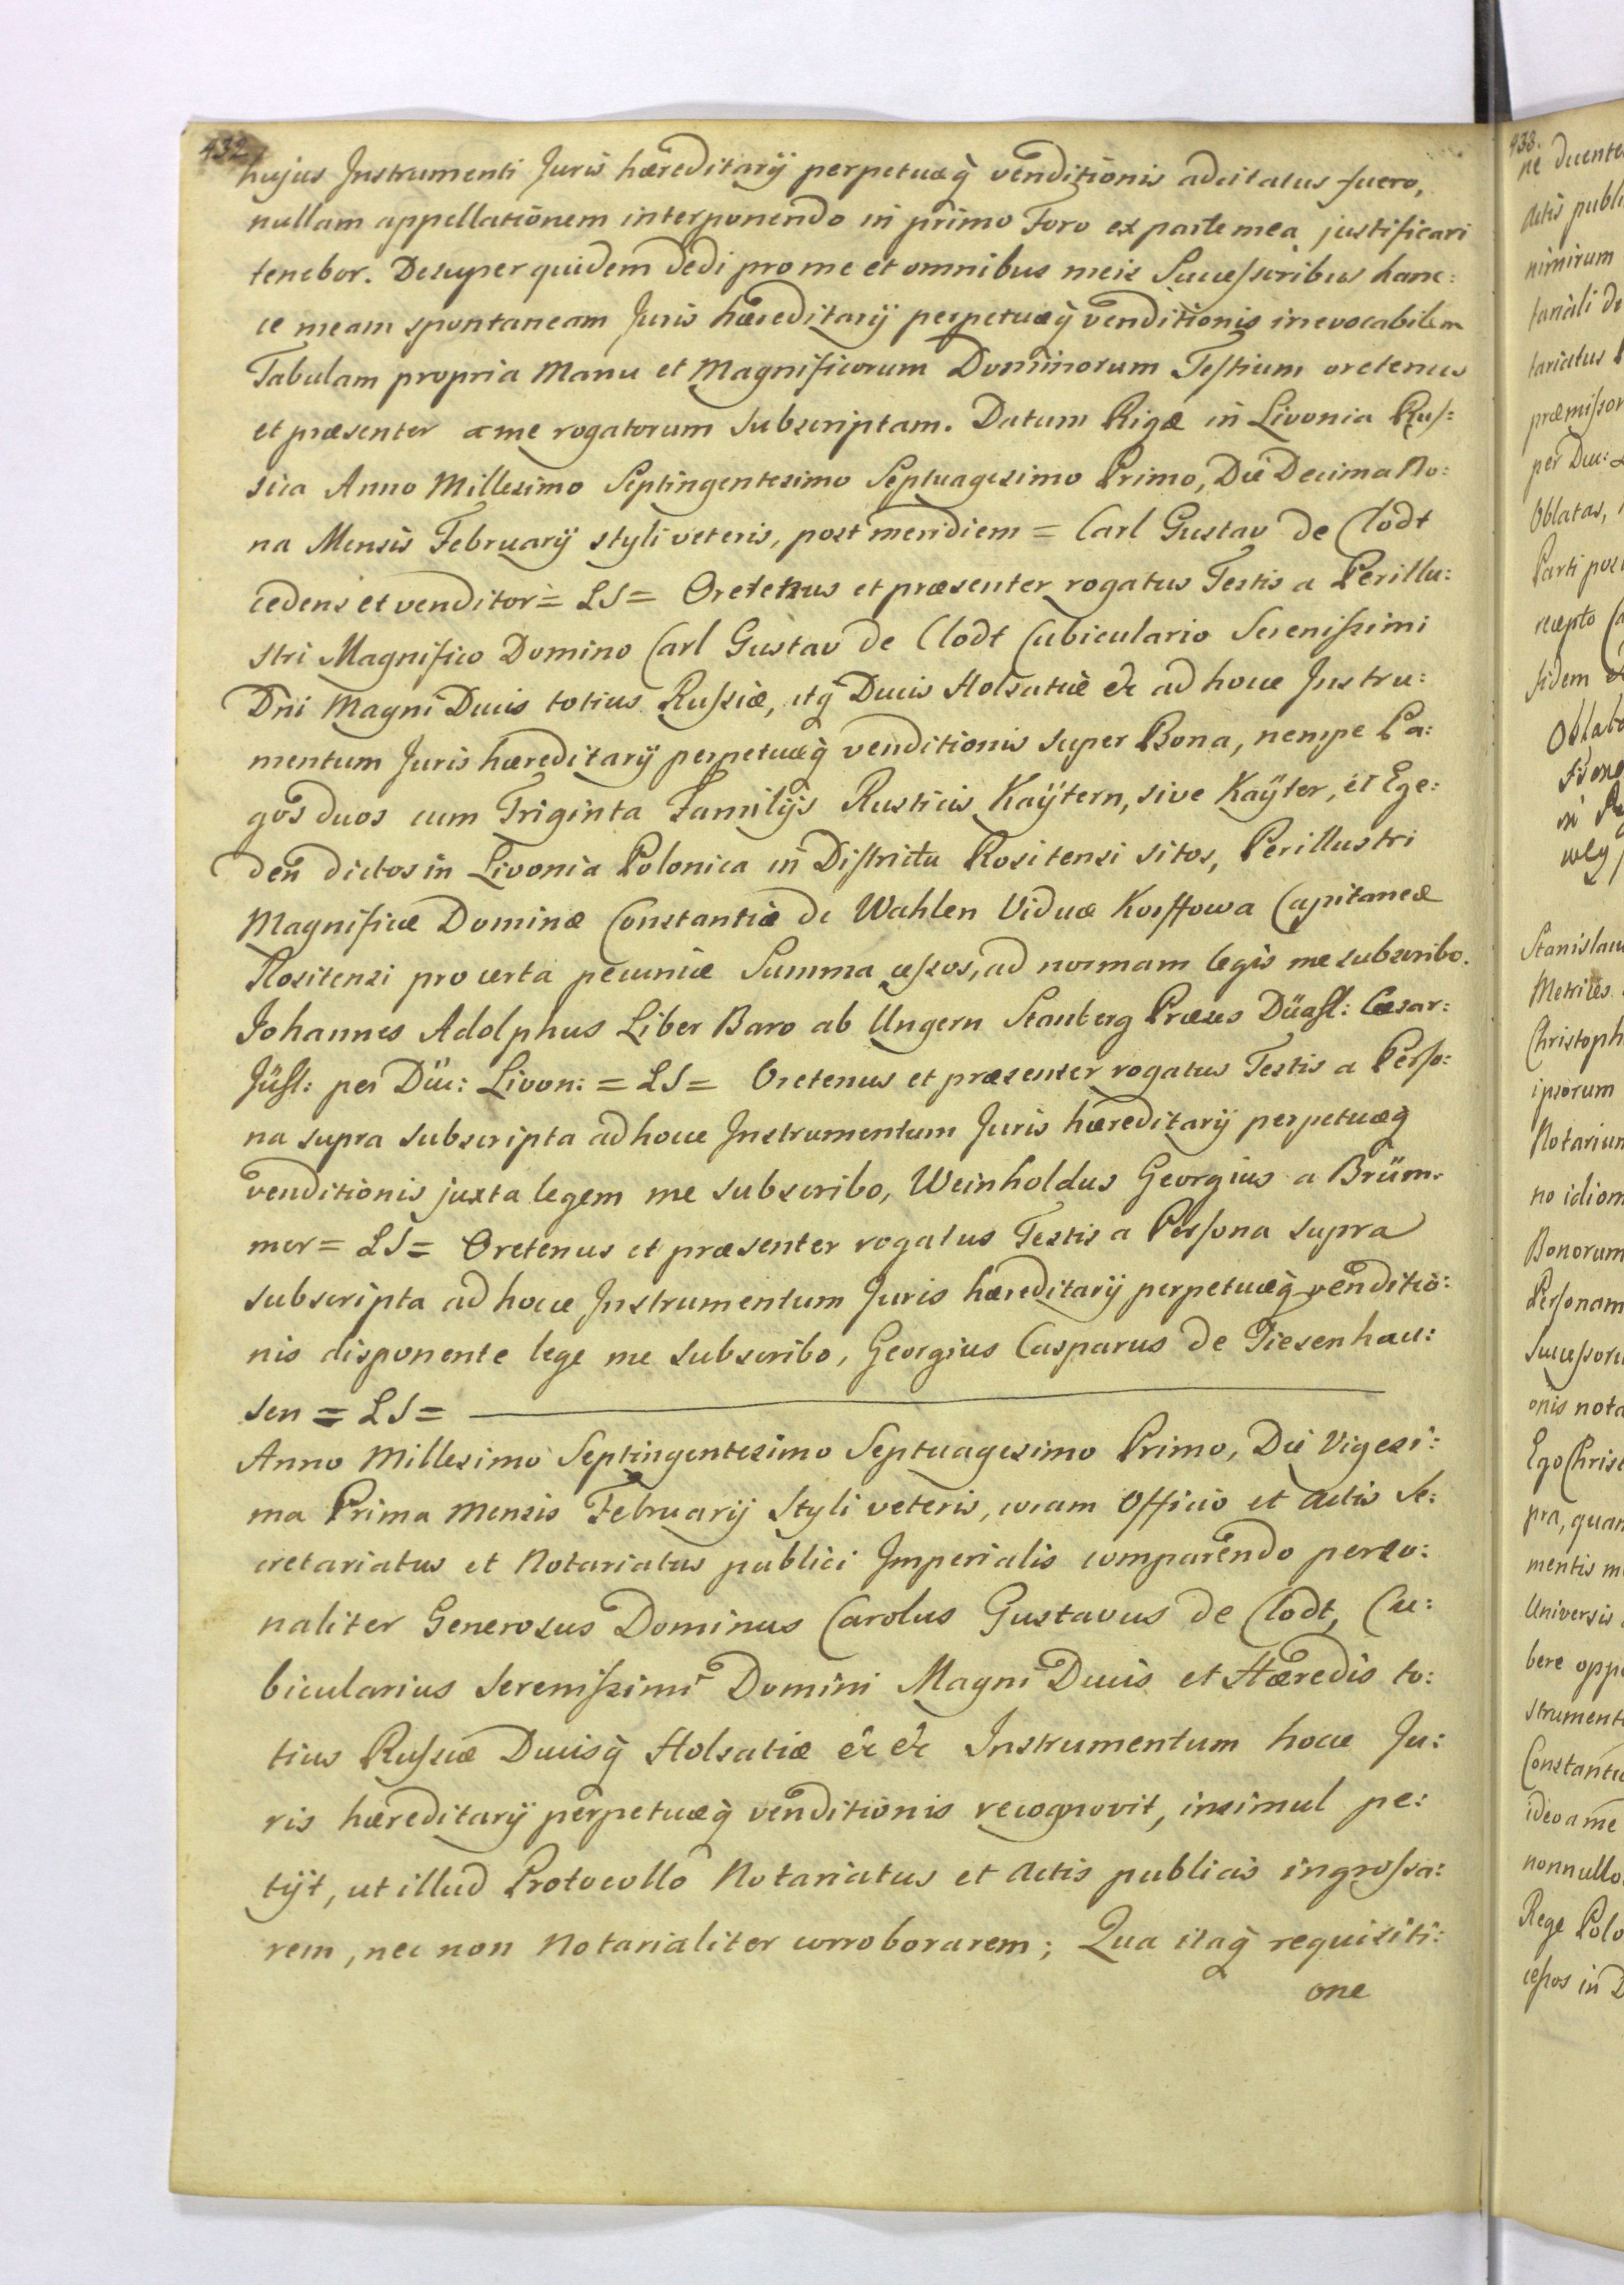 432
hujus Instrumenti Juris hæreditarij perpetuæq̀ venditionis adcitatus fuero,
nullam appellationem interponendo in primo Foro ex parte mea justificari
tenebor. Desuper quidem dedi pro me et omnibus meis Successoribus hanc:
ce meam spontaneam Juris hæreditarij perpetuæq̀ venditionis irrevocabilem
Tabulam propria Manu et Magnificorum Dominorum Testium oretenus
et præsenter a me rogatorum subscriptam. Datum Rigæ in Livonia Rus:
sica Anno Millesimo Septingentesimo Septuagesimo Primo, Die Decima No:
na Mensis Februarij styli veteris, post meridiem = Carl Gustav de Clodt
cedens et venditor = LS = Oretenus et præsenter rogatus Testis a Perillu:
stri Magnifico Domino Carl Gustav de Clodt Cubiculario Serenissimi
Dñi Magni Ducis totius Russiæ, itq̀ Ducis Holsatiæ &c ad hocce Instru:
mentum Juris hæreditarij perpetuæq̀ venditionis super Bona, nempe Pa:
gos duos cum Triginta Familijs Rusticis Kaÿtern, sive Kaÿter, et Ege:
den dictos in Livonia Polonica in Districtu Rositensi sitos, Perillustri
Magnificæ Dominæ Constantiæ de Wahlen Viduæ Korffowa Capitaneæ
Rositensi pro certa pecuniæ Summa cessos, ad normam legis me subscribo.
Johannes Adolphus Liber Baro ab Ungern Stanberg Præses Düast: Cæsar:
Jüst: per Düc: Livon: = LS = Oretenus et præsenter rogatus Testis a Perso:
na supra subscripta ad hocce Instrumentum Juris hæreditarij perpetuæq̀
venditionis juxta legem me subscribo, Weinholdus Georgius a Brüm:
mer = LS = Oretenus et præsenter rogatus Testis a Persona supra
subscripta ad hocce Instrumentum Juris hæreditarij perpetuæq̀ venditio:
nis disponente lege me subscribo, Georgius Casparus de Tiesenhau:
sen = LS =
Anno Millesimo Septingentesimo Septuagesimo Primo, Die Vigesi:
ma Prima Mensis Februarij Styli veteris, coram Officio et Actis Se:
cretariatus et Notariatus publici Imperialis comparendo perso:
naliter Generosus Dominus Carolus Gustavus de Clodt, Cu:
bicularius Serenissimi Domini Magni Ducis et Hæredis to:
tius Russiæ Ducisq̀ Holsatiæ &c &c Instrumentum hocce Ju:
ris hæreditarij perpetuæq̀ venditionis recognovit, insimul pe:
tijt, ut illud Protocollo Notariatus et Actis publicis ingrossa:
rem, nec non Notarialiter corroborarem; Qua itaq̀ requisiti:
one
433.
ne ducente
Actis publi
nimirum
tariatus
per Duc:
Oblatas,
recepto
fidem
Oblat
Stanislau
Metrices
Christoph
ipsorum
Notarium
no idiom
Bonorum
Personam
Successoru
onis nota
Ego Christ
pra, quam
mentis m
Universis
bere oppo
strument
Constanti
ideo a me
nonnullo
Rege Polo
cessos in D